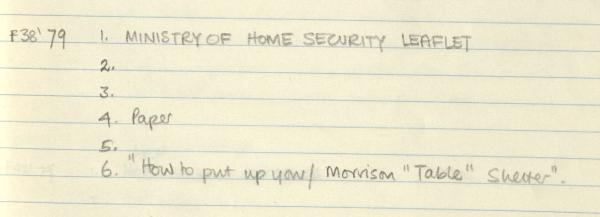 F38'79 1. MINISTRY OF HOME SECURITY LEAFLET
2.
3.
4. Paper
5.
6. "How to put up your/ Morrison "Table" Shelter".